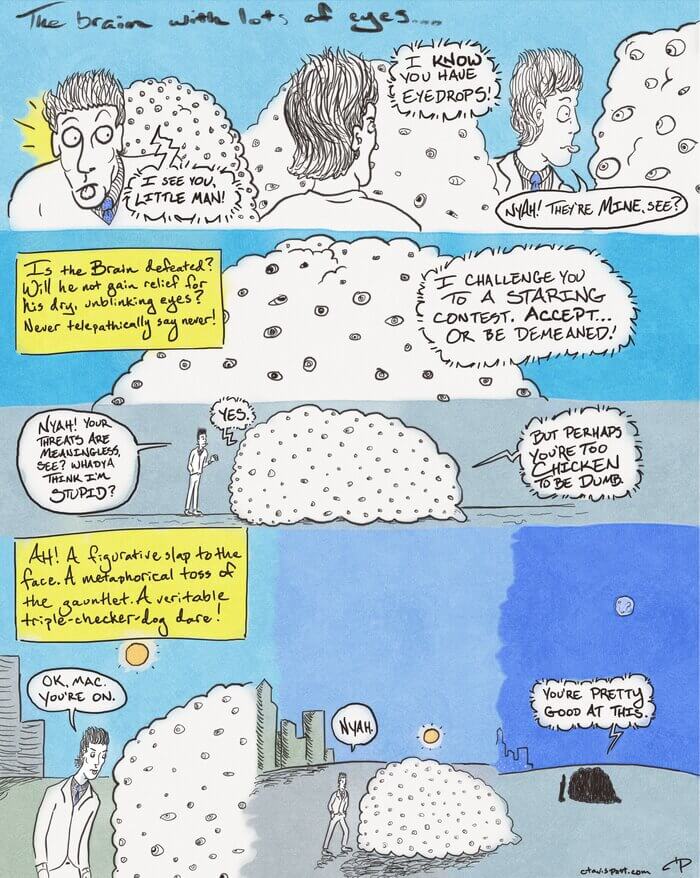 The brain with lots of eyes....
I SEE YOU,
LITTLE MAN!
I KNOW
YOU HAVE
EYEDROPS!
NYAH! THEY'RE MINE, SEE?
Is the Brain defeated?
Will he not gain relief for
his dry, unblinking eyes?
Never telepathically say never!
I CHALLENGE YOU
TO A STARING
CONTEST. ACCEPT...
OR BE DEMEANED!
NYAH! YOUR
THREATS ARE
MEANINGLESS,
SEE? WHADYA
THINK I'M
STUPID?
YES.
BUT PERHAPS
YOU'RE TOO
CHICKEN
TO BE DUMB.
AH! A figurative slap to the
face. A metaphorical toss of
the gauntlet. A veritable
triple-checker-dog dare!
OK, MAC.
YOU'RE ON.
NYAH.
YOU'RE PRETTY
GOOD AT THIS.
ctavispost.com